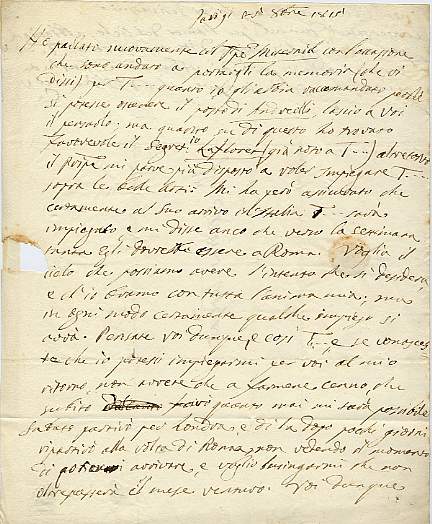 Parigi 8bre 1815
Ho parlato nuovamente al Ppe Metternich con l'occasione
che sono andato a portargli la memoria (che vi
dissi) per T--- quanto io gli abbia raccomandato perchè
si potesse ottenere il posto di lascio a voi
il pensarlo; ma quanto più di questo ho trovato
favorevole il Segret.rio (già noto a T---) altrettanto
il Prīpe mi parve più disposto a voler impiegare T---
sopra le belle Arti. Mi ha però assicurato che
certamente al suo arrivo in Italia T--- sarà
impiegato e mi disse anco che verso la settimana
santa egli dovette essere a Roma. Voglia il
cielo che possiamo avere l'intento che si desidera
e ch'io bramo con tutta l'anima mia, ma
in ogni modo certamente qualche impiego si
avrà. Pensate voi dunque, e così T--- e se conosces-
te che io potessi impiegarmi per voi al mio
ritorno, non avrete che a farmene cenno che
subito farò quanto mai mi sarà possibile
Sabato partirò per Londra e di là dopo pochi giorni
ripartirò alla volta di Roma non vedendo il momento
di potervi arrivare, e voglio lusingarmi che non
oltrepasserà il mese venturo. Voi dunque